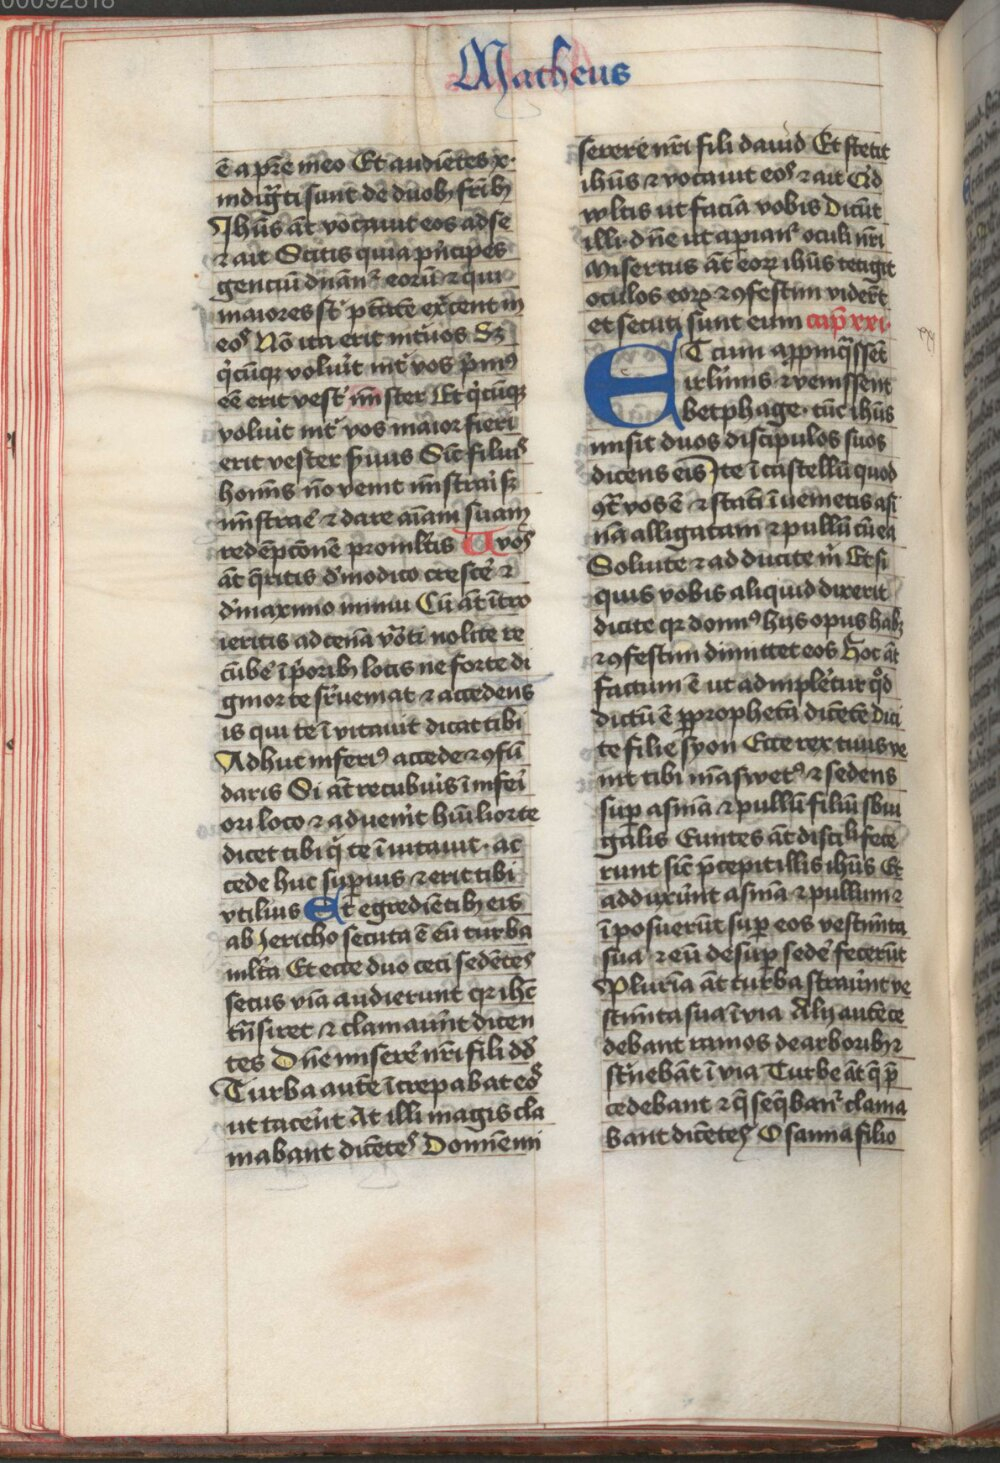 00092818
Matheus
ē a pr̄e meo Et audiētes x·
indigᷓti sunt de duobꝫ fr̄ibꝫ
Jhūs āt vocauit eos ad se
⁊ ait Scitis quia pⁱncipes
genciū dnānᷣ eorū ⁊ qui
maiores sᷣt ptātē exᷣcent in
eoˢ Nō ita erit int̕ uos Sꝫ
qⁱcūqꝫ voluᷣit int̕ vos pᷣmꝰ
eē erit vestᷣ mīster Et qⁱcūqꝫ
voluᷣit int̕ vos maior fieri
erit vester sᷣuus Sic̄ filiuˢ
homīs nō venit mīstrari sꝫ
mīstrare̕ ⁊ dare aīam suam
redēpc̄onē pro ml̄tis Uvoˢ
āt qᷣritis de̕ modico cresce̕ ⁊
de̕ maximo minui Cū āt ītro
ieritis ad cenā vōti nolite re
cūbe̕ ī sup̕oribꝫ locis ne forte di
gnior te suꝑueniat ⁊ accedens
is qui te īvitauit dicat tibi
Adhuc inferiꝰ accede ⁊ ꝯfū
daris Si āt recubuᷣis ī inferi
ori loco ⁊ aduenᷣit hūilior te
dicet tibi qⁱ te īuitauit · ac
cede huc suꝑius ⁊ erit tibi
vtilius Et egrediētibꝫ eis
ab Jericho secuta ē eū turba
ml̄ta Et ecce duo ceci sedēteˢ
secus viā audierunt qꝛ ihc̄
tn̄siret ⁊ clamauᷣnt dicen
tes Dn̄e misere̕ nr̄i fili dd̄
Turba autē īcrepabat eoˢ
ut tacerᷣēt At illi magis cla
mabant dicēteˢ Domīe mi
serere nr̄i fili dauid Et stetit
ihūs ⁊ vocauit eoˢ ⁊ ait Qⁱd
vultis ut faciā vobis Dicūt
illi · dn̄e ut apianᷣ oculi nr̄i
Misertus āt eorꝝ ihūs tetigit
oculos eorꝝ ⁊ ꝯfestim viderūt
et secuti sunt eum cap̄ xxi·
ET cum appinqᷓssēt
irl̄imis ⁊ venissent
betphage · tūc ihūs
misit duos discipulos suos
dicens eis Jte ī castellū quod
ꝯᷓ vos ē ⁊ statī īuenietis asi
nā alligatam ⁊ pullū cū ea
Soluite ⁊ adducite m̄ Et si
quis vobis aliquid dixerit
dicite qꝛ domꝰ hijs opus habꝫ
⁊ ꝯfestim dimittet eos Hoc āt
factum ē ut adimplerᷣetur qᵒd
dictū ē ꝑ prophetā dicētē Dici
te filie syon Ecce rex tuus ve
nit tibi māswetꝰ ⁊ sedens
suꝑ asinā ⁊ pullū filiū sbiu
galis Euntes āt discīli fece
runt sic̄ pᷓcepit illis ihūs Et
adduxᷣunt asinā ⁊ pullum ⁊
īposuerūt suꝑ eos vestim̄ta
sua ⁊ eū desuꝑ sede̕ fecerūt
Plurīa āt turba strauᷣnt ve
stim̄ta sua ī via Alij autē ce
debant ramos de arboribꝫ ⁊
stᷣnebāt ī via Turbe āt q̄ pᷓ
cedebant ⁊ q̄ seq̄banᷣ clama
bant dicēteˢ Osanna filio